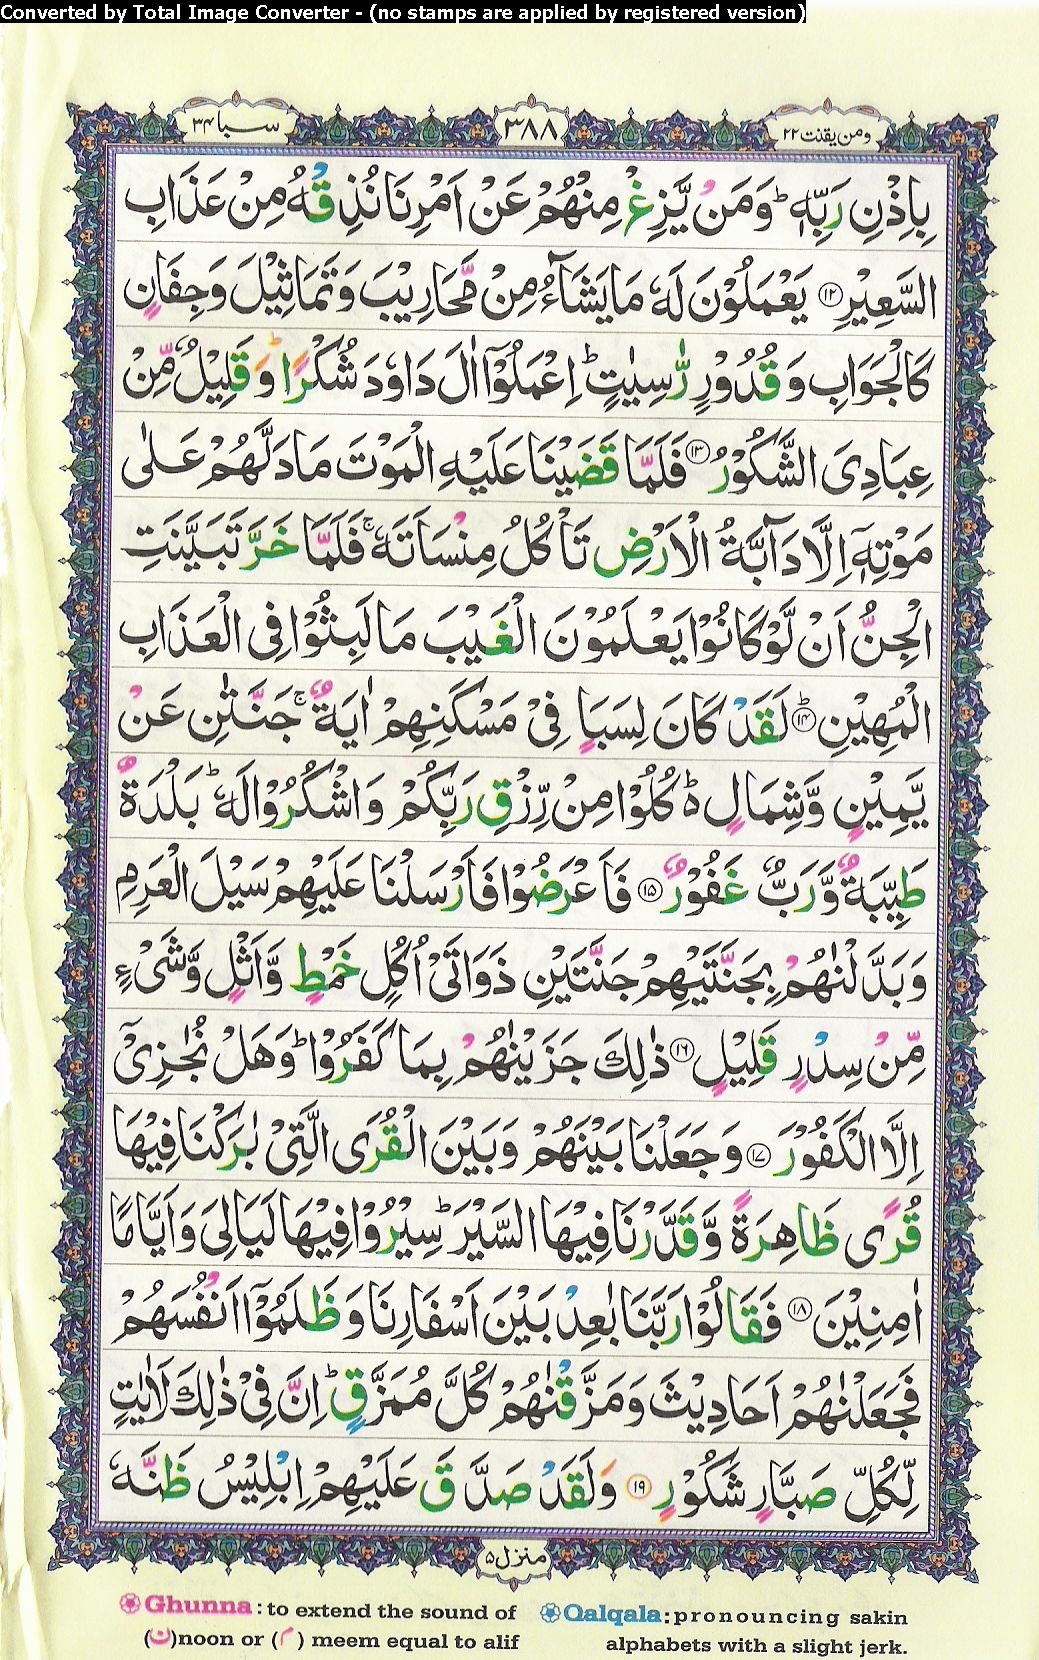 Converted by Total Image Converter - (no stamps are applied by registered version)
سبا ۳۴ ۳۸۸ ومن يقنت ۲۲
بِاِذْنِ رَبِّهٖ ؕ وَمَنْ يَّزِغْ مِنْهُمْ عَنْ اَمْرِنَا نُذِقْهُ مِنْ عَذَابِ
السَّعِيْرِ ﴿۱۲﴾ يَعْمَلُوْنَ لَهٗ مَا يَشَآءُ مِنْ مَّحَارِيْبَ وَتَمَاثِيْلَ وَجِفَانٍ
كَالْجَوَابِ وَقُدُوْرٍ رّٰسِيٰتٍ ؕ اِعْمَلُوْۤا اٰلَ دَاوٗدَ شُكْرًا ؕ وَقَلِيْلٌ مِّنْ
عِبَادِىَ الشَّكُوْرُ ﴿۱۳﴾ فَلَمَّا قَضَيْنَا عَلَيْهِ الْمَوْتَ مَا دَلَّهُمْ عَلٰى
مَوْتِهٖۤ اِلَّا دَآبَّةُ الْاَرْضِ تَاْكُلُ مِنْسَاَتَهٗ ۚ فَلَمَّا خَرَّ تَبَيَّنَتِ
الْجِنُّ اَنْ لَّوْ كَانُوْا يَعْلَمُوْنَ الْغَيْبَ مَا لَبِثُوْا فِى الْعَذَابِ
الْمُهِيْنِ ﴿۱۴﴾ؕ لَقَدْ كَانَ لِسَبَاٍ فِىْ مَسْكَنِهِمْ اٰيَةٌ ۚ جَنَّتٰنِ عَنْ
يَّمِيْنٍ وَّشِمَالٍ ؕ۬ كُلُوْا مِنْ رِّزْقِ رَبِّكُمْ وَاشْكُرُوْا لَهٗ ؕ بَلْدَةٌ
طَيِّبَةٌ وَّرَبٌّ غَفُوْرٌ ﴿۱۵﴾ فَاَعْرَضُوْا فَاَرْسَلْنَا عَلَيْهِمْ سَيْلَ الْعَرِمِ
وَبَدَّلْنٰهُمْ بِجَنَّتَيْهِمْ جَنَّتَيْنِ ذَوَاتَىْ اُكُلٍ خَمْطٍ وَّاَثْلٍ وَّشَىْءٍ
مِّنْ سِدْرٍ قَلِيْلٍ ﴿۱۶﴾ ذٰلِكَ جَزَيْنٰهُمْ بِمَا كَفَرُوْا ؕ وَهَلْ نُجٰزِىْۤ
اِلَّا الْكَفُوْرَ ﴿۱۷﴾ وَجَعَلْنَا بَيْنَهُمْ وَبَيْنَ الْقُرَى الَّتِىْ بٰرَكْنَا فِيْهَا
قُرًى ظَاهِرَةً وَّقَدَّرْنَا فِيْهَا السَّيْرَ ؕ سِيْرُوْا فِيْهَا لَيَالِىَ وَاَيَّامًا
اٰمِنِيْنَ ﴿۱۸﴾ فَقَالُوْا رَبَّنَا بٰعِدْ بَيْنَ اَسْفَارِنَا وَظَلَمُوْۤا اَنْفُسَهُمْ
فَجَعَلْنٰهُمْ اَحَادِيْثَ وَمَزَّقْنٰهُمْ كُلَّ مُمَزَّقٍ ؕ اِنَّ فِىْ ذٰلِكَ لَاٰيٰتٍ
لِّكُلِّ صَبَّارٍ شَكُوْرٍ ﴿۱۹﴾ وَلَقَدْ صَدَّقَ عَلَيْهِمْ اِبْلِيْسُ ظَنَّهٗ
منزل ۵
Ghunna : to extend the sound of
(ن)noon or (م) meem equal to alif
Qalqala: pronouncing sakin
alphabets with a slight jerk.